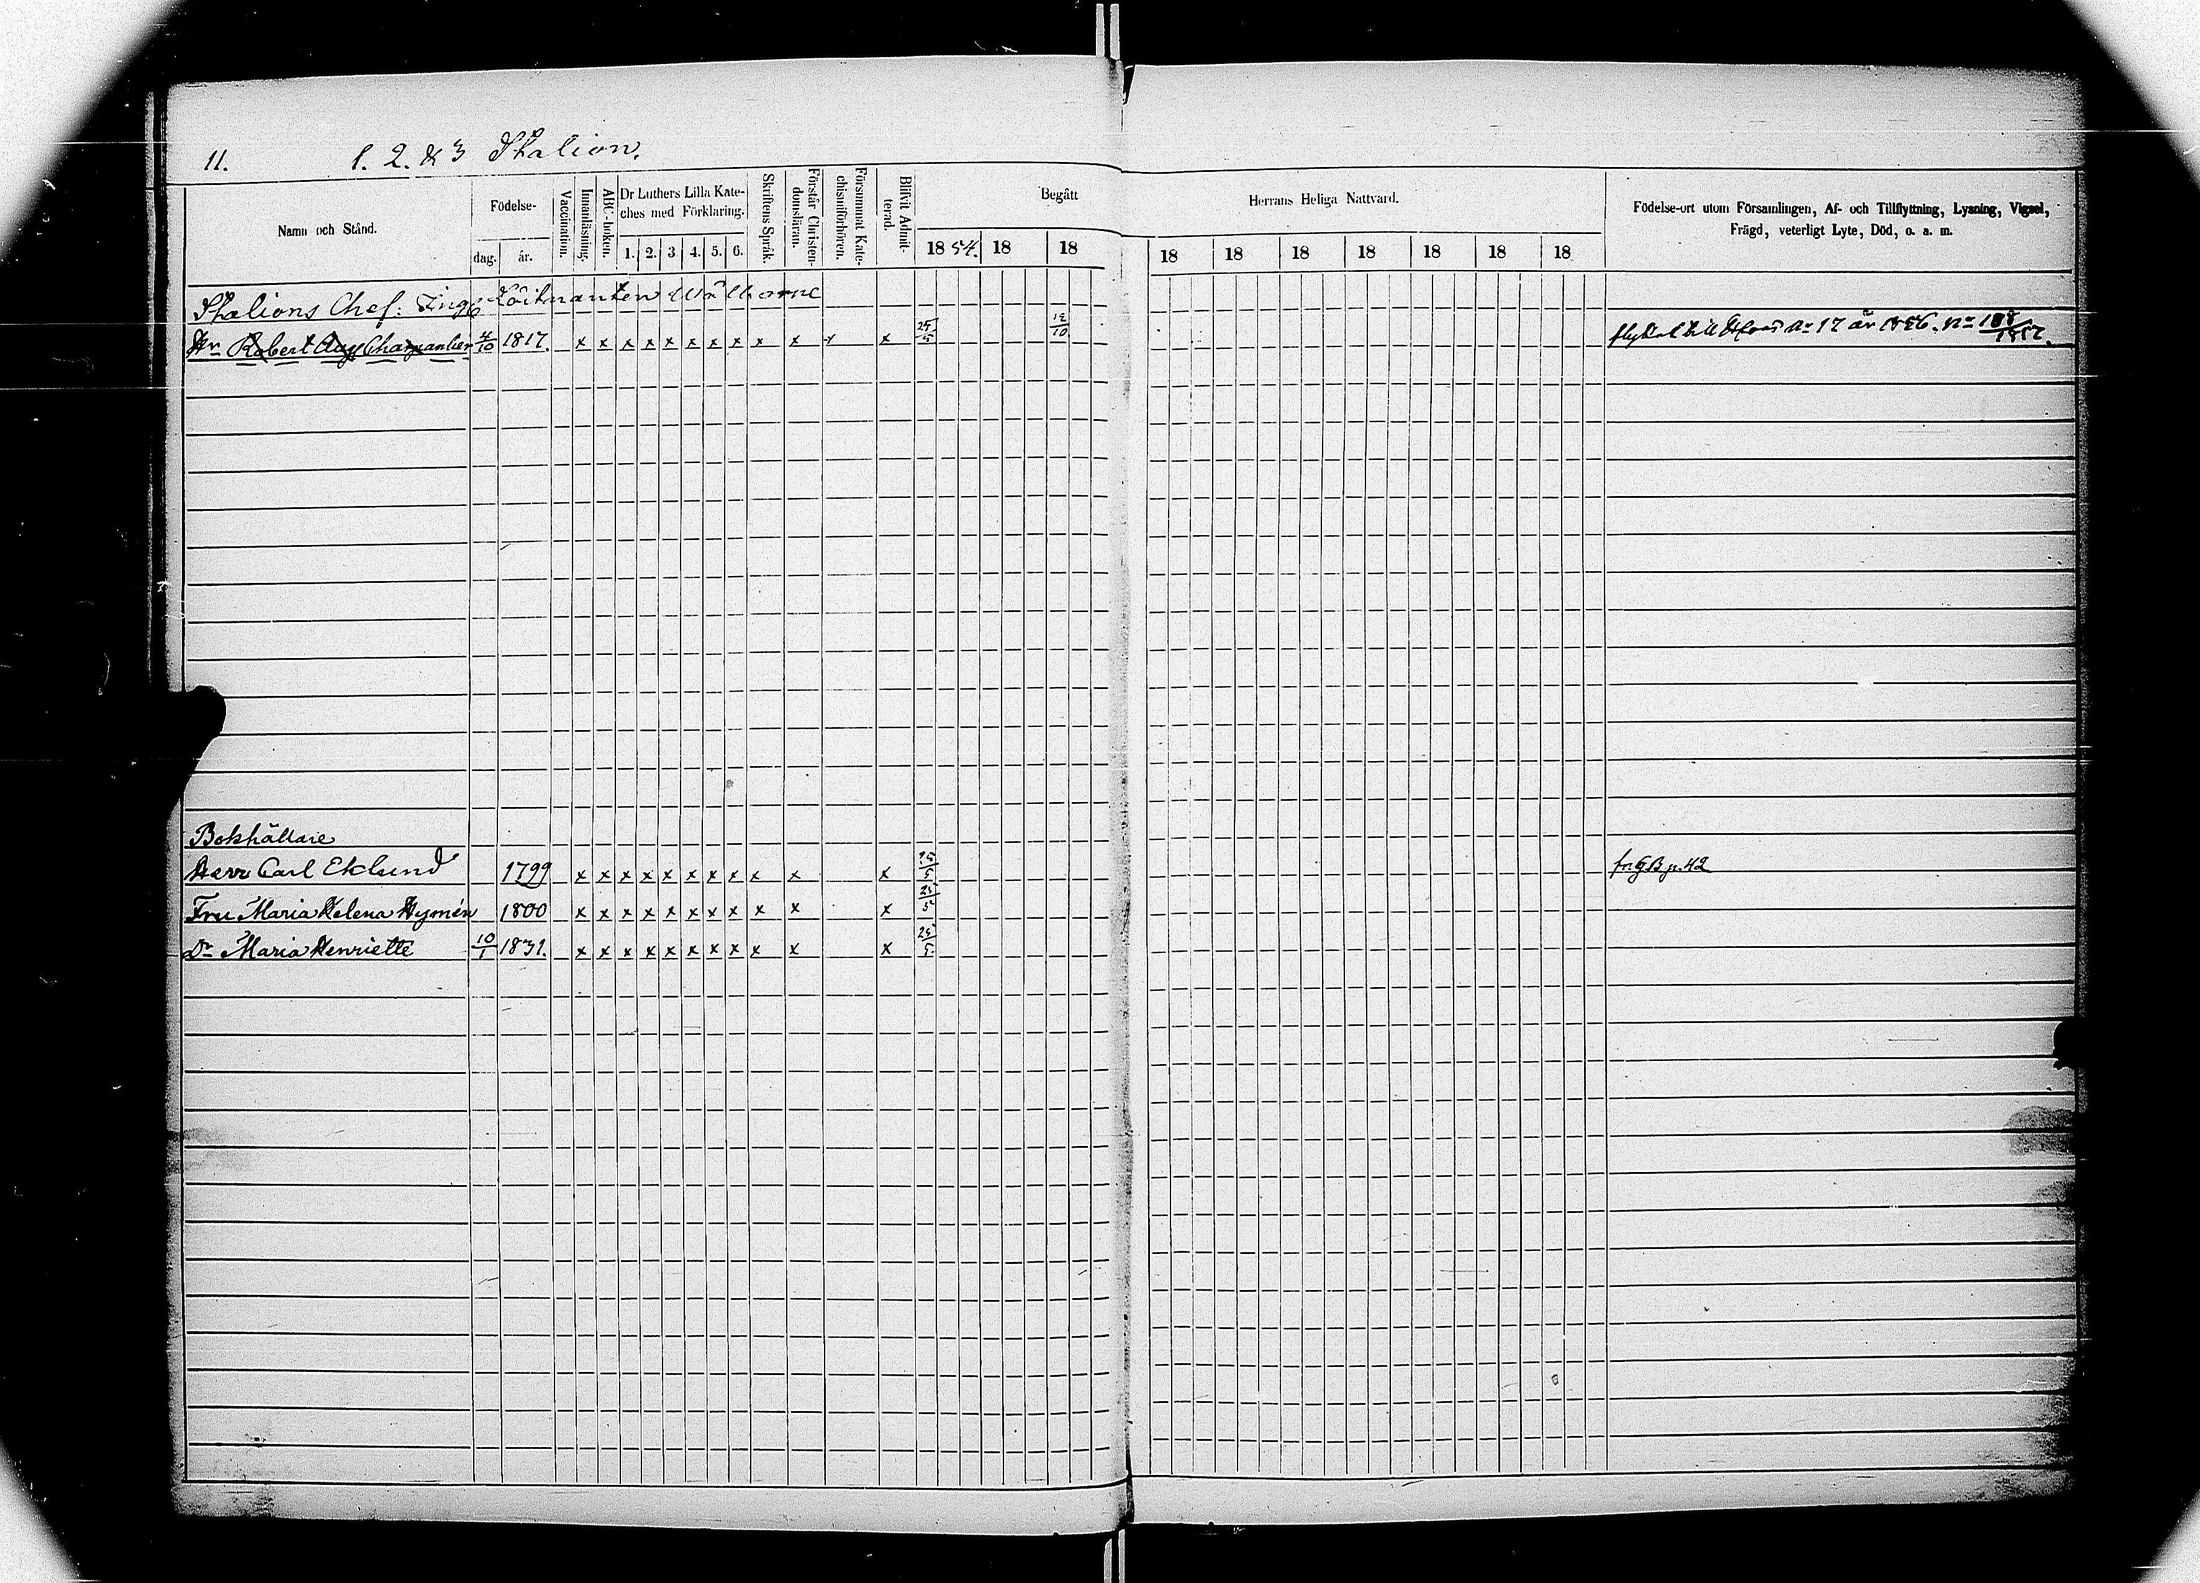 11. 1. 2. & 3 Station.
Namn och Stånd.
Födelse-
dag. år.
Vaccination.
Innanläsning.
ABC-boken.
Dr Luthers Lilla Kate-
ches med Förklaring.
1. 2. 3. 4. 5. 6.
Skriftens Språk.
Förstår Christen-
domsläran.
Försummat Kate-
chismiförhören.
Blifvit Admit-
terad.
Begått Herrans Heliga Nattvard.
1854. 18 18 18 18 18 18 18 18 18
Födelse-ort utom Församlingen, Af- och Tillflyttning, Lysning, Vigsel,
Frägd, veterligt Lyte, Död, o. a. m.
Stations Chef: Löitnanten Wälborne
Hr Robert Aug 4/10 1817. x x x x x x x x x x x x 25/5 12/10 N:o 17 år 1856.
Bokhållare
Herr Carl Eklund 1799 x x x x x x x x x x x 25/5 fr. G B p. 42
Fru Maria Helena Hymén 1800 x x x x x x x x x x x 25/5
Dr Maria Henriette 10/1 1831. x x x x x x x x x x x 25/5